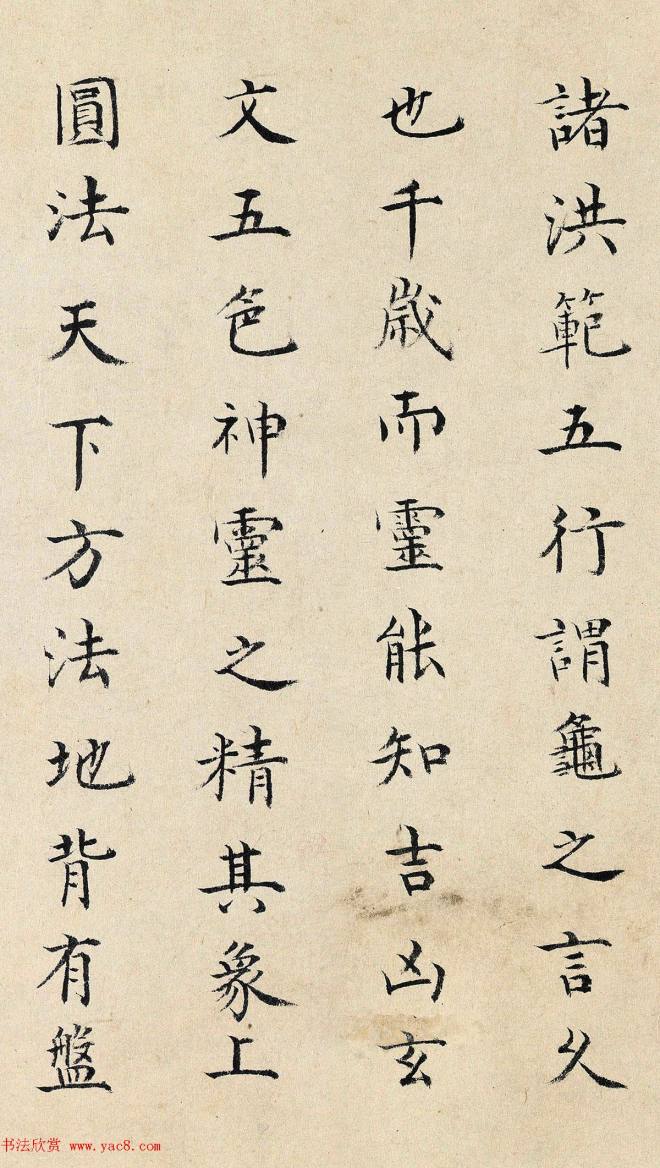 諸洪範五行謂龜之言久
也千歲而靈能知吉凶玄
文五色神靈之精其象上
圓法天下方法地背有盤
书法欣赏 www.yac8.com